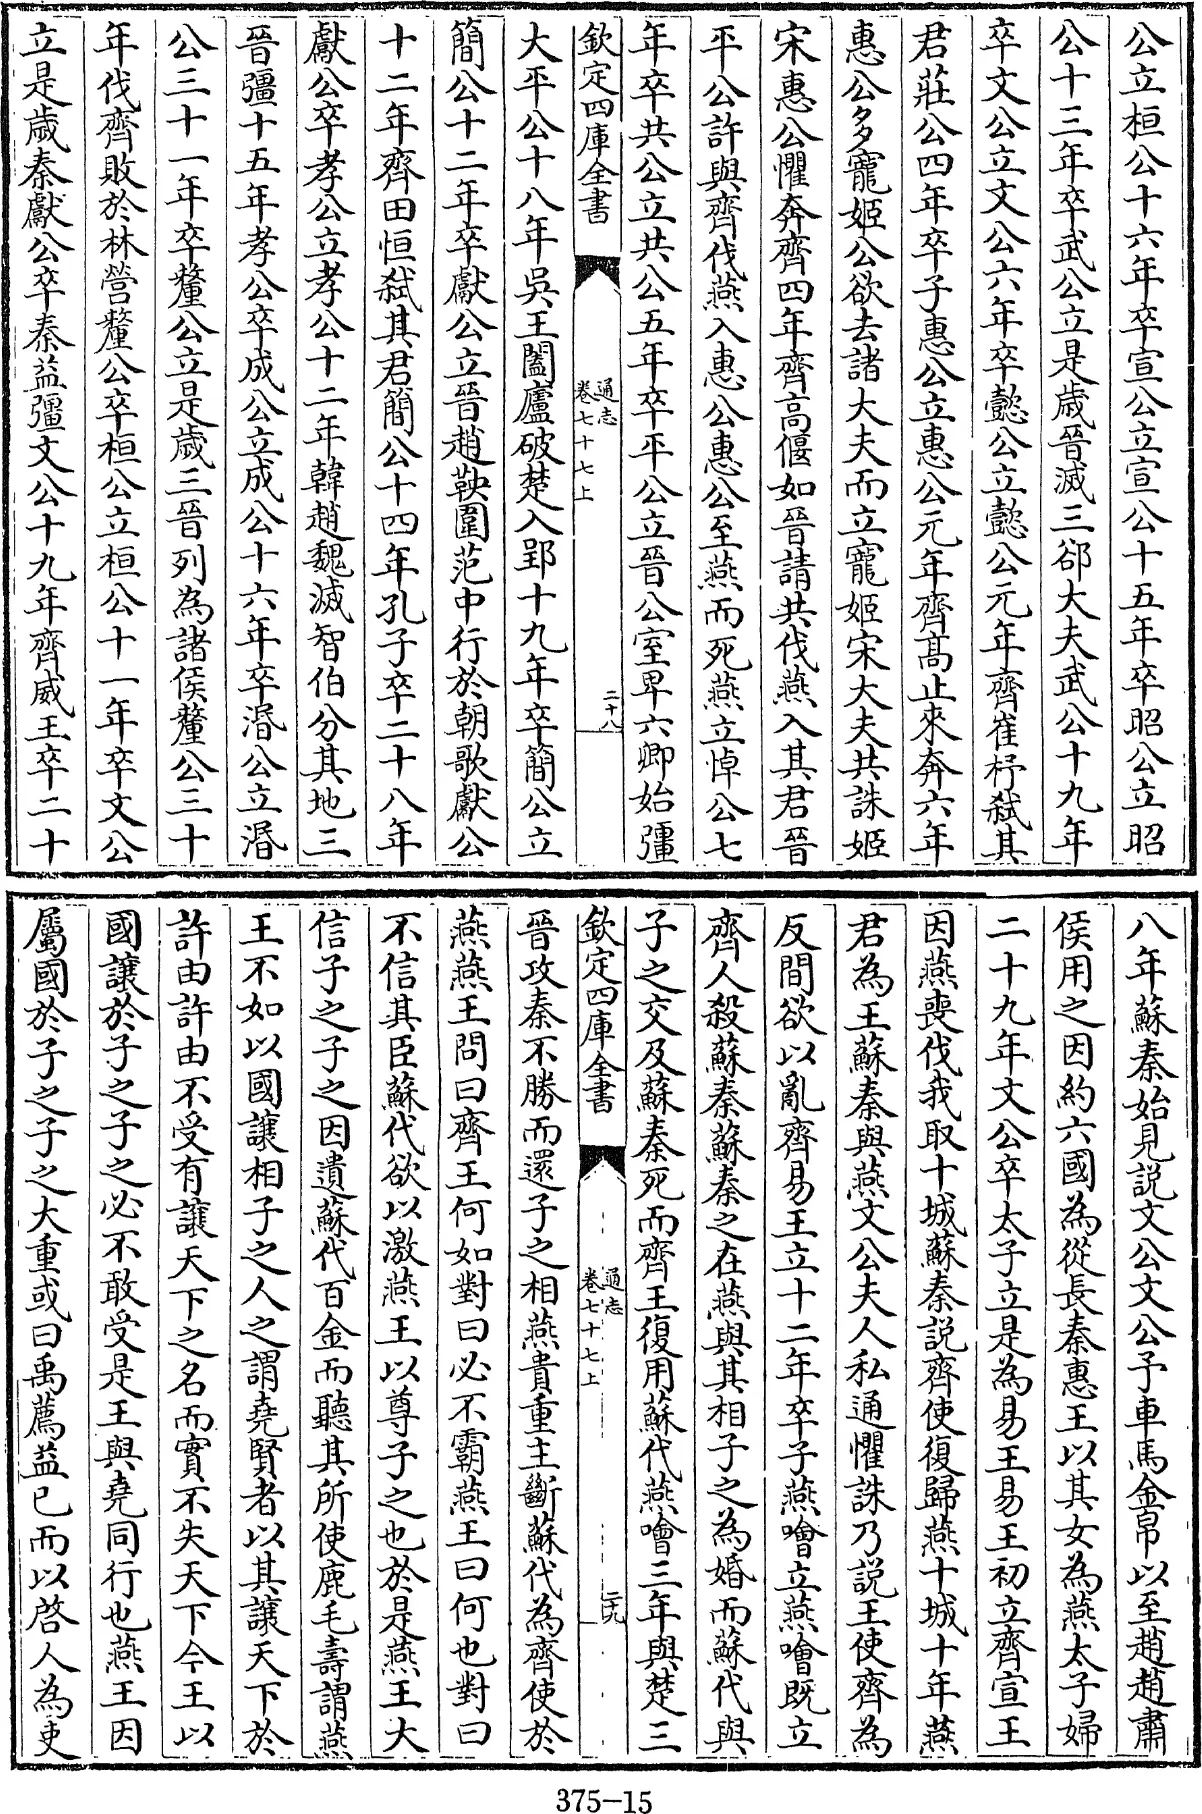 公立桓公十六年卒宣公立宣公十五年卒昭公立昭
公十三年卒武公立是歲晉滅三郤大夫武公十九年
卒文公立文公六年卒懿公立懿公元年齊崔杼弑其
君莊公四年卒子惠公立惠公元年齊髙止來奔六年
惠公多寵姬公欲去諸大夫而立寵姬宋大夫共誅姬
宋惠公懼奔齊四年齊高偃如晉請共伐燕入其君晉
平公許與齊伐燕入惠公惠公至燕而死燕立悼公七
年卒共公立共公五年卒平公立晉公室卑六卿始彊
欽定四庫全書
通志
卷七十七上
二十八
大平公十八年吳王闔廬破楚入郢十九年卒簡公立
簡公十二年卒獻公立晉趙鞅圍范中行於朝歌獻公
十二年齊田恒弑其君簡公十四年孔子卒二十八年
獻公卒孝公立孝公十二年韓趙魏滅智伯分其地三
晉彊十五年孝公卒成公立成公十六年卒湣公立湣
公三十一年卒釐公立是歲三晉列為諸侯釐公三十
年伐齊敗於林營釐公卒桓公立桓公十一年卒文公
立是歲秦獻公卒秦益彊文公十九年齊威王卒二十
八年蘇秦始見説文公文公予車馬金帛以至趙趙肅
侯用之因約六國為從長秦惠王以其女為燕太子婦
二十九年文公卒太子立是為易王易王初立齊宣王
因燕喪伐我取十城蘇秦説齊使復歸燕十城十年燕
君為王蘇秦與燕文公夫人私通懼誅乃説王使齊為
反間欲以亂齊易王立十二年卒子燕噲立燕噲既立
齊人殺蘇秦蘇秦之在燕與其相子之為婚而蘇代與
子之交及蘇秦死而齊王復用蘇代燕噲三年與楚三
欽定四庫全書
通志
卷七十七上
二十九
晉攻秦不勝而還子之相燕貴重主斷蘇代為齊使於
燕燕王問曰齊王何如對曰必不霸燕王曰何也對曰
不信其臣蘇代欲以激燕王以尊子之也於是燕王大
信子之子之因遺蘇代百金而聽其所使鹿毛壽謂燕
王不如以國讓相子之人之謂堯賢者以其讓天下於
許由許由不受有讓天下之名而實不失天下今王以
國讓於子之子之必不敢受是王與堯同行也燕王因
屬國於子之子之大重或曰禹薦益已而以啓人為吏
375-15